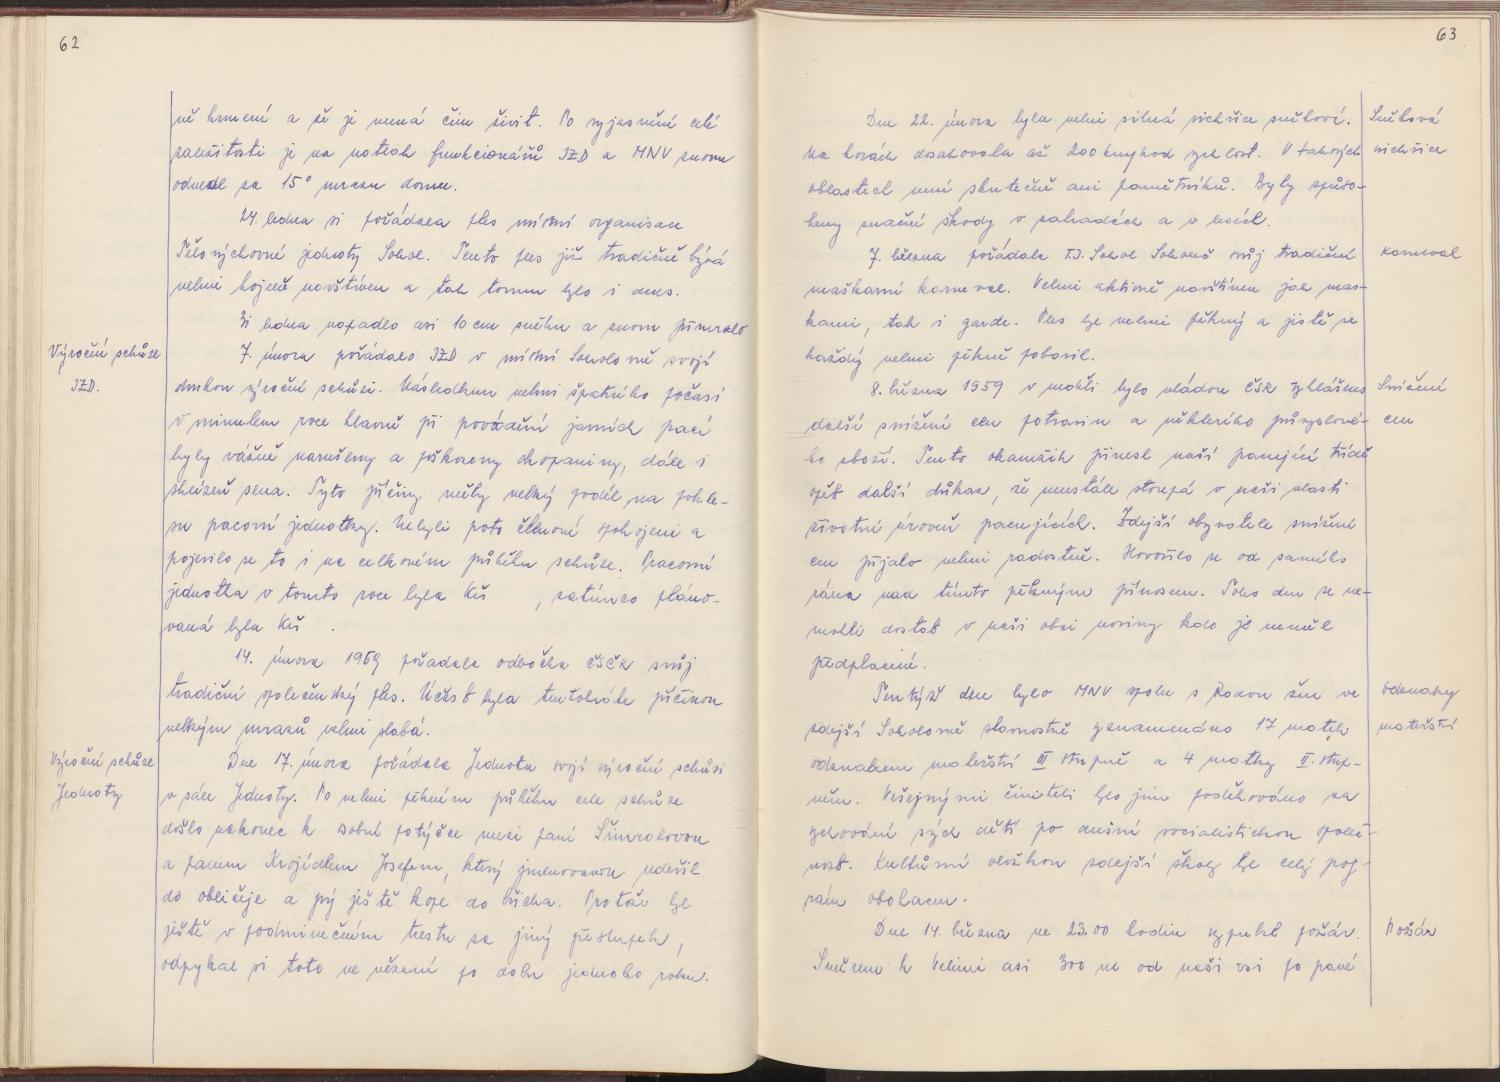 62
ně krmení a že je nemá čím živit. Po vyjasnění celé
záležitosti je na potrah funkcionářů JZD a MNV znovu
odvedl za 15° mrazu domu.
24. ledna si pořádala ples místní organisace
Tělovýchovné jednoty Sokol. Tento ples již tradičně bývá
velmi hojně navštíven a tak tomu bylo i dnes.
31 ledna napadlo asi 10 cm sněhu a znovu přimrzlo
Výroční schůze
JZD.
7. února pořádalo JZD v místní Sokolovně svojí
druhou výroční schůzi. Následkem velmi špatného počasí
v minulém roce hlavně při provádění jarních prací
byly vážně narušeny a poškozeny okopaniny, dále i
sklizeň sena. Tyto příčiny měly velký podíl na pokle-
su pracovní jednotky. Nebyli proto členové spokojeni a
projevilo se to i na celkovém průběhu schůze. Pracovní
jednotka v tomto roce byla Kčs , zatímco pláno-
vaná byla Kčs .
14. února 1959 pořádala odbočka ČSČK svůj
tradiční společenský ples. Účast byla tentokráte příčinou
velkých mrazů velmi slabá.
Výroční schůze
Jednoty
Dne 17. února pořádala Jednota svojí výroční schůzi
v sále Jednoty. Po velmi pěkném průběhu celé schůze
došlo nakonec k osobní potyčce mezi paní Šimralovou
a panem Krojídlem Josefem, který jmenovanou udeřil
do obličeje a prý ještě kope do břicha. Protože byl
ještě v podmínečném trestu za jiný přestupek,
odpykal si toto ve vězení po dobu jednoho roku.
63
Dne 22. února byla velmi silná vichřice sněhová.
Sněhová
vichřice
Na horách dosahovala až 200 km/hod rychlost. V takových
oblastech není skutečně ani pamětníků. Byly způso-
beny značné škody v zahradách a v lesích.
7. března pořádala T.J. Sokol Sokoleč svůj tradiční
karneval
maškarní karneval. Velmi aktivně navštíven jak mas-
kami, tak i garde. Ples byl velmi pěkný a jistě se
každý velmi pěkně pobavil.
8. března 1959 v neděli bylo vládou ČSR vyhlášeno
Snížení
cen
další snížení cen potravin a některého průmyslové-
ho zboží. Tento okamžik přinesl naší pracující třídě
opět další důkaz, že neustále stoupá v naší vlasti
životní úroveň pracujících. Zdejší obyvatelé snížení
cen přijalo velmi radostně. Hovořilo se od samého
rána nad tímto pěkným přínosem. Toho dne se ne-
mohli dostat v naší obci noviny kdo je neměl
předplacené.
Tentýž den bylo MNV spolu s Radou žen ve
Odznaky
mateřství
zdejší Sokolovně slavnostně vyznamenáno 17 matek
odznakem mateřství III stupně a 4 matky II. stup-
něm. Veřejnými činiteli bylo jim poděkováno za
vychování svých dětí pro dnešní socialistickou společ-
nost. Kulturní vložkou zdejší školy byl celý prog-
rám obohacen.
Dne 14. března ve 23.00 hodin vypukl požár.
Požár
Směrem k Velimi asi 300 m od naší vsi po pravé